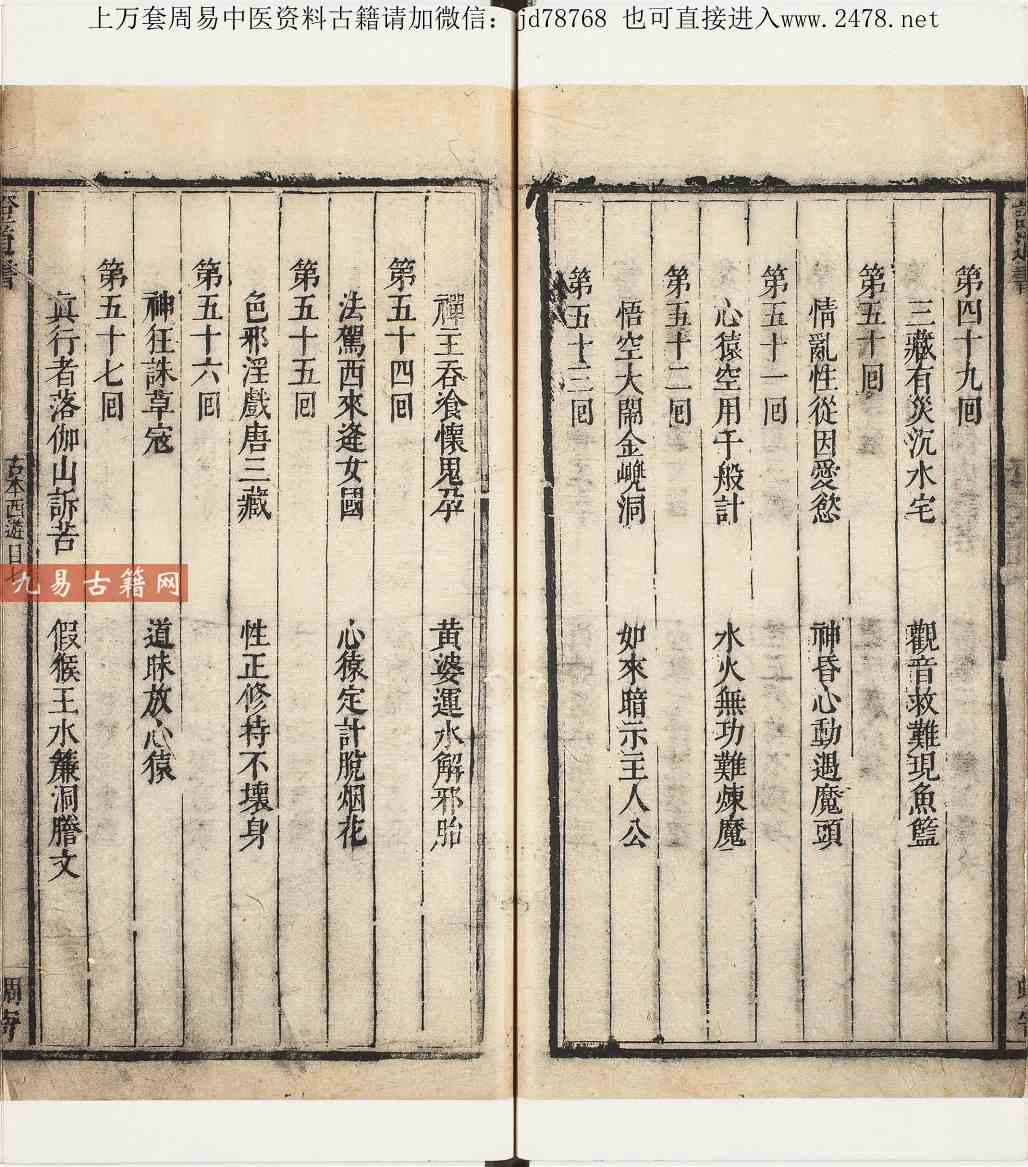 上万套周易中医资料古籍请加微信：jd78768 也可直接进入www.2478.net
第四十九囘
三藏有災沉水宅 觀音救難現魚籃
第五十囘
情亂性從因愛慾 神昏心動遇魔頭
第五十一囘
心猿空用千般計 水火無功難煉魔
第五十二囘
悟空大鬧金𠒋洞 如來暗示主人公
第五十三囘
禪王吞飡懷鬼孕 黃婆運水解邪胎
第五十四囘
法駕西來逢女國 心猿定計脫烟花
第五十五囘
色邪淫戲唐三藏 性正修持不壞身
第五十六囘
神狂誅草寇 道昧放心猿
第五十七囘
眞行者落伽山訴苦 假猴王水簾洞謄文
證道書
古本西遊目
九易古籍网